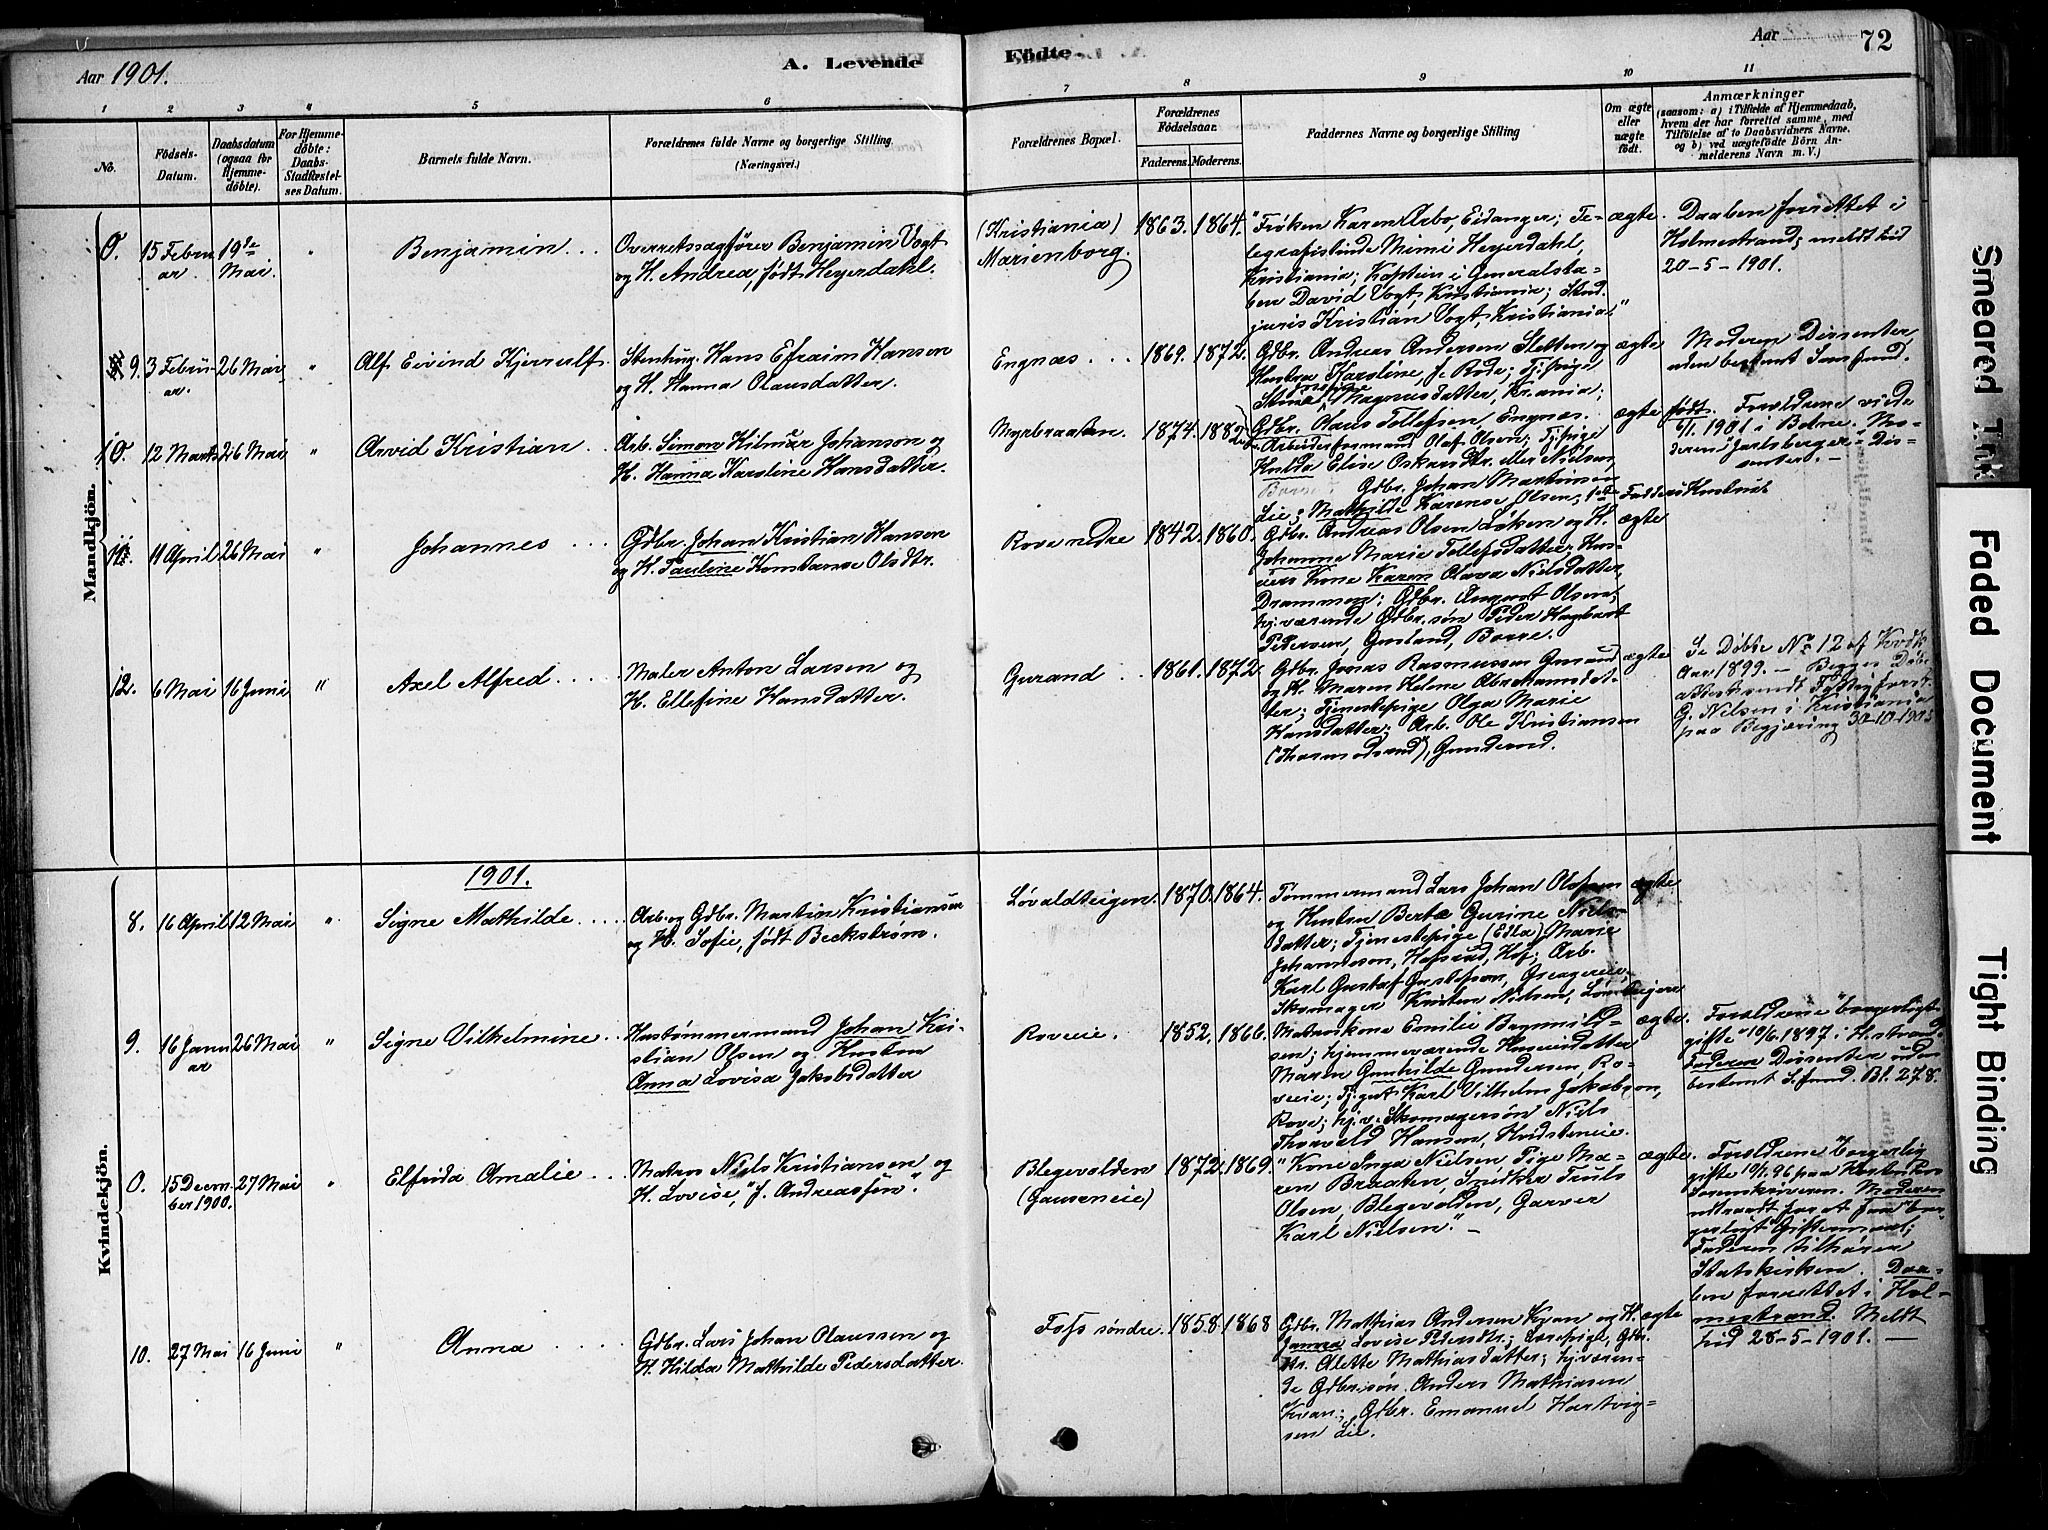 Aar 1901.
A. Levende
Födte.
Aar
72
1
2
3
"
5
6
7
8
9
10
11
No.
Födsels-
Datum.
Daabsdatum
(ogsaa for
Hjemme-
döbte).
For Hjemme-
döbte:
Daabs-
Stadfæstel-
ses Datum.
Barnets fulde Navn.
Forældrenes fulde Navne og borgerlige Stilling
(Næringsvei.)
Forældrenes Bopæl.
Forældrenes
Födselsaar.
Faderens.
Moderens.
Faddernes Navne og borgerlige Stilling
Om ægte
eller
uægte
født.
Anmærkninger
(saasom: a) i Tilfælde af Hjemmedaab,
hvem der har forrettet samme, med
Tilföielse af to Daabsvidners Navne,
og b) ved uægtefödte Börn An-
melderens Navn m. V.)
Mandkjön.
0.
15 Febru
ar.
19de
Mai.
"
Benjamin ...
Overretssagfører Benjamin Vogt
og H. Andrea, født Heyerdahl.
(Kristiania)
Marienborg.
1863.
1864.
"Frøken Karen Arbo, Eidanger; Te-
legrafistinde Mimi Heyerdahl,
Kristiania; Kaptein i Generalsta-
ben David Vogt, Kristiania; Stud.
juris Kristian Vogt, Kristiania."
ægte.
Daaben forrettet i
Holmestrand; meldt hid
20-5-1901.
9.
3 Febru-
ar.
26 Mai
"
Alf Eivind Kjerrulf.
Stenhug. Hans Efraim Hansen
og H. Hanna Olausdatter.
Engnæs. ...
1869.
1872.
Gdbr. Andreas Andersen Sletten og
Hustru Karoline, f. Rode; Tj.pige
Magnusdatter, Kr.ania;
Gdbr. Olaus Tollefsen, Engnæs.
ægte
Moderen Dissenter
uden bestemt Samfund.
10.
12 Marts
26 Mai
"
Arvid Kristian ..
Arb. Simon Hilmar Johanson og
H. Hanna Karoline Hansdatter.
Myrbraaten.
1874.
1882.
Arbeidsformand Olaf Olsen; Tj.pige
Hulda Elise Oskarsdtr. eller Nielsen,
Borre; Gdbr. Johan Martinsen
Lie; Mathilde Karense Olsen, sidste Fadders Hustru.
ægte
født. Forældrene viede
6/1 1901 i Botne. Mo-
deren "Jarlsberger"-Dis-
senter. -
11.
11 April
26 Mai
"
Johannes ...
Gdbr. Johan Kristian Hansen
og H. Pauline Konstanse Olsdtr.
Rove nedre
1842.
1860.
Gdbr. Andreas Olsen Løken og H.
Johanne Marie Tollefsdatter; Hus-
eiers Kone Karen Olava Nielsdatter,
Drammen; Gdbr. August Olsen;
hj.værende Gdbr.søn Peder Hagbart
Pedersen, Gusland, Borre.
ægte
12.
6 Mai
16 Juni
"
Axel Alfred ....
Maler Anton Larsen og
H. Ellefine Hansdatter.
Gurand ..
1861.
1872.
Gdbr. Jonas Rasmussen
og H. Maren Helene Abrahamsdat-
ter; Tjenestepige Olga Marie
Hansdatter; Arb. Ole Kristiansen
("Thormodsrud"), Gunderød.
ægte
Se Døbte No 12 af Kvdk.
Aar 1899. - Begges Døbe-
attest sendt Fattigforst.
G. Nilsen i Kristiania
paa Begjæring 30-10-1903
1901.
Kvindekjön.
8.
16 April
12 Mai
"
Signe Mathilde ....
Arb. og Gdbr. Martin Kristiansen
og H. Sofie, født Beckstrøm.
Løvaldteigen.
1870.
1864.
Tømmermand Lars Johan Olafsen
og Hustru Berta Gurine Niels-
datter; Tjenestepige (Edla) Marie
Johannesen, Hafsrud, Hof; Arb.
Karl Gustaf Gustafson,
Skomager Kristen Nilsen,
ægte
9.
16 Janu
ar
26 Mai
"
Signe Vilhelmine ..
Hustømmermand Johan Kri-
stian Olsen og Hustru
Anna Lovisa Jakobsdatter
Roveeie.
1852.
1866.
Matroskone Emilie Brynnild-
sen; hjemmeværende Huseiersdatter
Maren Gunhilde Gundersen, Ro-
veeie; Tj.gut Karl Vilhelm Jakobson,
Rove; hj.v. Skomagersøn Niels
Thorvald Hansen,
ægte.
Forældrene "borgerligt
gifte" 10/6 1897 i H.strand.
Faderen Dissenter uden
bestemt S.fund. Bl. 278.
0.
15 Decem-
ber 1900.
27 Mai
"
Elfrida Amalie ...
Matros Niels Kristiansen og
H. Lovise, "f. Andreassen".
Blegevolden
(Gausneeie)
1872.
1869.
"Kone Inga Nielsen, Pige Ma-
ren Braaten, Snedker Truls
Olsen, Blegevolden, Garver
Karl Nielsen." -
ægte.
Forældrene "borgerlig
gifte 10/1 96 paa Kontr.
Sorenskriveren. Moderen
udtraadt for at faa bor-
gerligt Giftermaal;
Faderen tilhører
Statskirken. Daa-
ben forrettet i Hol-
mestrand. Meldt
hid 28-5-1901. -
10.
27 Mai
16 Juni
"
Anna ....
Gdbr. Lars Johan Olaussen og
H. Hilda Mathilde Pedersdatter.
Fofs søndre.
1858.
1868
Gdbr. Mathias Andersen Kvan og H.
Janna Lovise Pedersdtr; Gdbr.-
dtr. Alette Mathiasdatter; hj.væren-
de Gdbr.søn Anders Mathiasen
Kvan; Gdbr. Emanuel Hartvig-
sen Lie.
ægte
Smeared Ink
Faded Document
Tight Binding